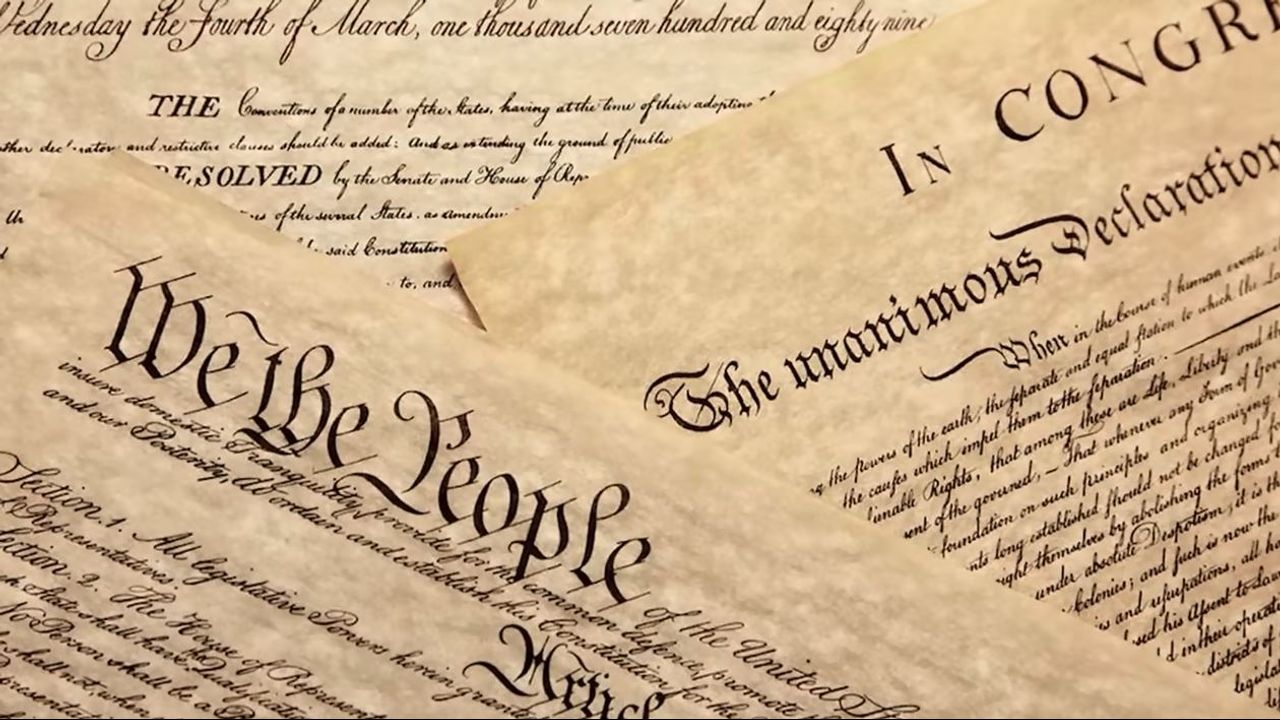 Wednesday the Fourth of March, one thousand seven hundred and eighty nine
THE Conventions of a number of the States, having at the time of their adoption
and restrictive clauses should be added: And as extending the ground of public
RESOLVED by the Senate and House of Rep
of the several States, as amendm
said Constitution
to, and
In CONGRE
The unanimous Declaration
When in the Course of human events
the powers of the earth, the separate and equal station to which the La
the causes which impel them to the separation.
unable Rights, that among these are Life, Liberty and th
sent of the governed, — That whenever any Form of Gov
foundation on such principles and organizing
nts long established should not be changed f
ight themselves by abolishing the forms t
under absolute Despotism, it is th
Colonies; and such is now the
s and usurpations, all ha
sed his Assent to Law
d in their operat
districts of
legisla
We the People of the United St
insure domestic Tranquility, provide for the common defence, promote
and our Posterity, do ordain and establish this Constitution for the
Article
Section. 1. All legislative Powers herein grante
Representatives.
ection. 2. The House of Represent
State shall have the Qualification
No Person shall be a
shall not, when